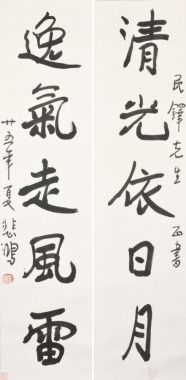 清光依日月
民鐸先生正書
逸氣走風雷
廿五年夏悲鴻